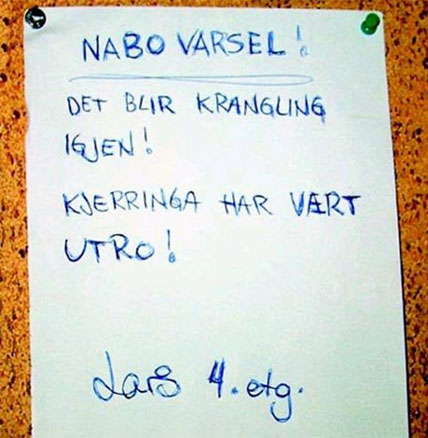 NABO VARSEL!
DET BLIR KRANGLING
IGJEN!
KJERRINGA HAR VÆRT
UTRO!
Lars 4. etg.